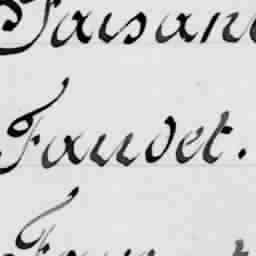 Faisan
Faudet.